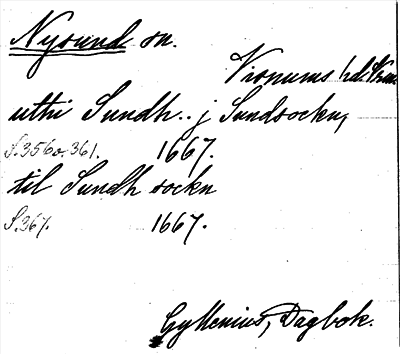 Nysund sn.
Visnums hd. Vrm.
uthi Sundh.. j Sundsockn,
S. 356 o. 361. 1667.
til Sundh sockn
S. 367. 1667.
Gyllenius, Dagbok.